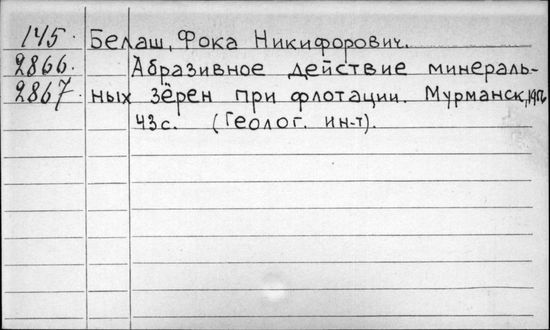 145. Белаш, Фока Никифорович.
2866. Абразивное действие минераль-
2867. ных зёрен при флотации. Мурманск,
43 с. (Геолог. ин-т).